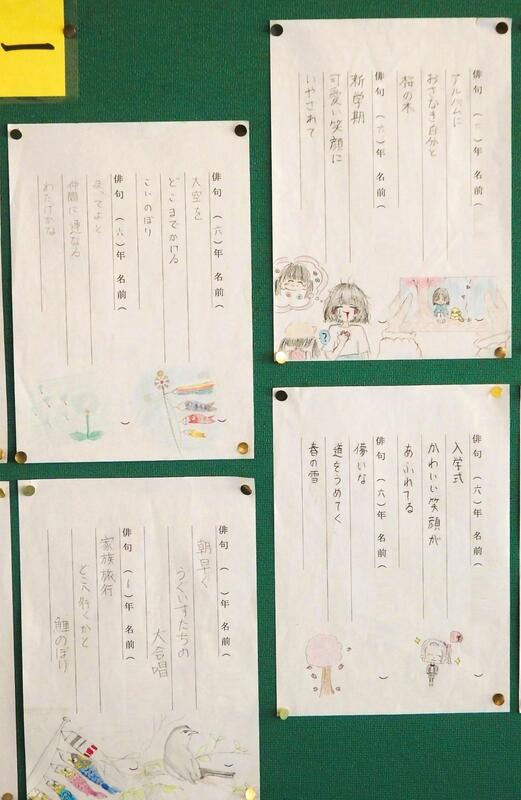 一
俳句 （ ）年 名前（ ）
アルバムに
おさなき自分と
桜の木
俳句（六）年 名前（
新学期
可愛い笑顔に
いやされて
俳句（六）年 名前（ ）
大空を
どこまでかける
こいのぼり
俳句（六）年 名前（ ）
まってよと
仲間に連なる
わたげかな
俳句（六）年 名前（ ）
入学式
かわいい笑顔が
あふれてる
俳句（六）年 名前（ ）
儚いな
道をうめてく
春の雪
俳句（ ）年 名前（ ）
朝早く
うぐいすたちの
大合唱
俳句（ ）年 名前（ ）
家族旅行
どこへ行くかと
鯉のぼり